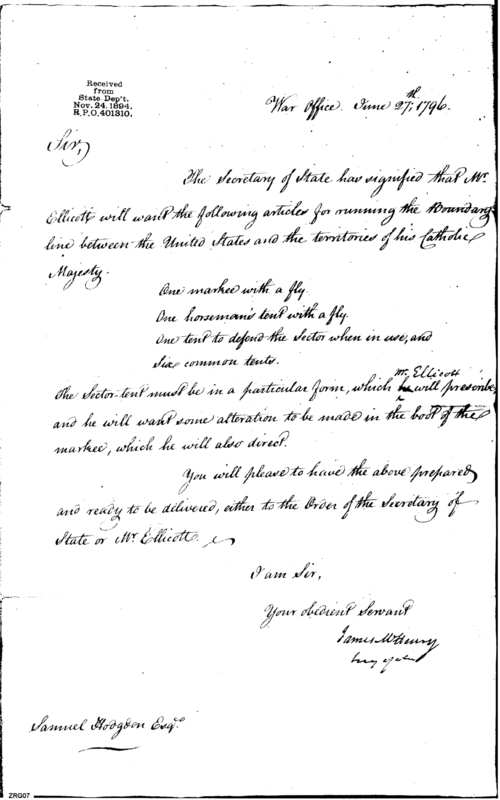 Received
from
State Dep't.
Nov. 24. 1894.
R.P.O. 401310.
War Office. June 27th, 1796.
Sir,
The Secretary of State has signified that Mr.
Ellicott will want the following articles for running the Boundary
line between the United States and the territories of his Catholic
Majesty.
One markee with a fly.
One horseman's tent with a fly.
One tent to defend the Sector when in use, and
Six common tents.
Mr. Ellicott
The Sector-tent must be in a particular form, which he will prescribe,
and he will want some alteration to be made in the boot of the
markee, which he will also direct.
You will please to have the above prepared
and ready to be delivered, either to the Order of the Secretary of
State or Mr. Ellicott.
I am Sir,
Your obedient Servant
James McHenry
Samuel Hodgdon Esqr.
ZRG07